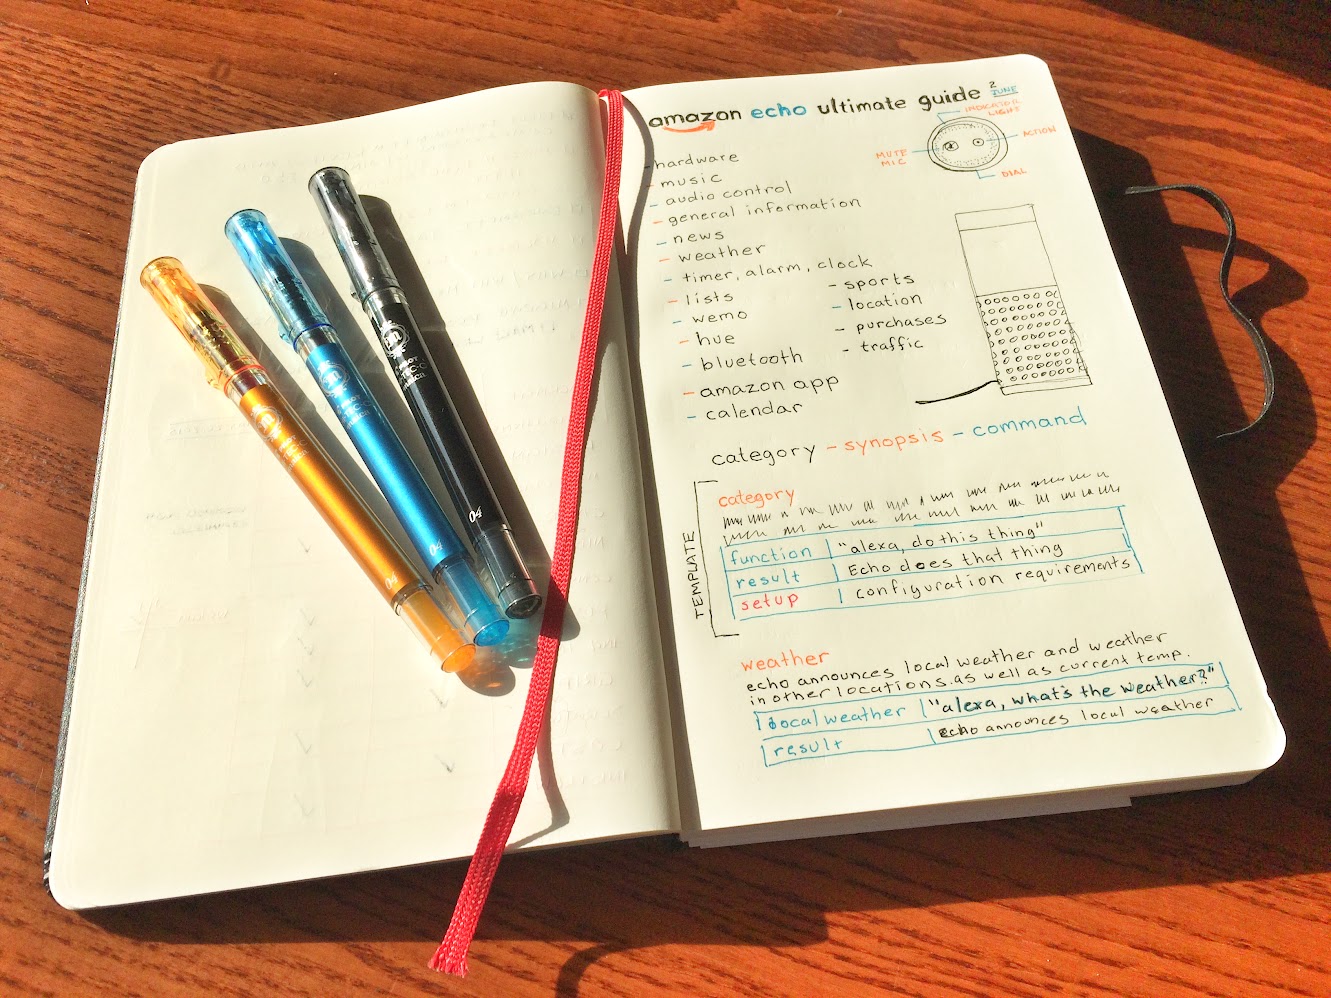 amazon echo ultimate guide 2 JUNE
INDICATOR
LIGHT
ACTION
MUTE
MIC
DIAL
- hardware
- music
- audio control
- general information
- news
- weather
- timer, alarm, clock
- lists
- wemo
- hue
- bluetooth
- amazon app
- calendar
- sports
- location
- purchases
- traffic
category - synopsis - command
TEMPLATE
category
function "alexa, do this thing"
result Echo does that thing
setup configuration requirements
weather
echo announces local weather and weather
in other locations. as well as current temp.
local weather "alexa, what's the weather?"
result echo announces local weather
04
04
04